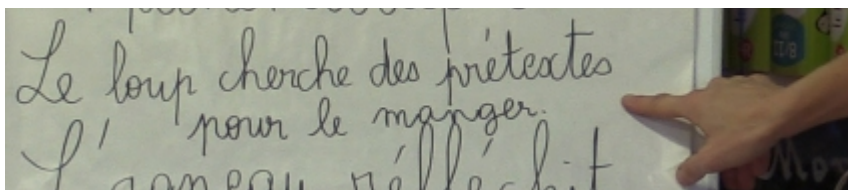 Le loup cherche des prétextes
pour le manger.
L'agneau réfléchit